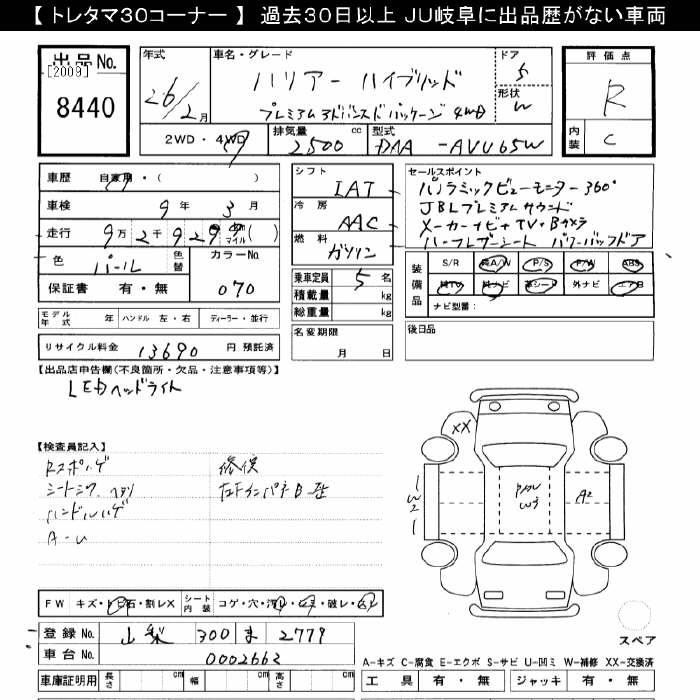 【 トレタマ30コーナー 】 過去30日以上 JU岐阜に出品歴がない車両
出品 No.
[2009]
8440
年式
26/2月
車名・グレード
ハリアー ハイブリッド
プレミアムアドバンスドパッケージ 4WD
ドア
5
形状
W
評価点
R
内装
C
2WD・4WD
排気量
2500 cc
型式
DAA -AVU65W
車歴 自家用・( )
車検 9年 3月
走行 9万2千929 km マイル ( )
色 パール 色替
カラーNo.
070
保証書 有・無
シフト
IAT
冷房
AAC
燃料
ガソリン
乗車定員 5 名
積載量 kg
総重量 kg
名変期限
月 日
セールスポイント
パノラミックビューモニター360°
JBLプレミアムサウンド
メーカーナビ+TV+Bカメラ
ハーフレザーシート パワーバックドア
装備品
S/R 純A/W P/S P/W ABS
純TV 純ナビ 革シート 外ナビ エアB
ナビ型番:
後日品
モデル年式 年 ハンドル 左・右 ディーラー・並行
リサイクル料金 13690 円 預託済
【出品店申告欄(不良箇所・欠品・注意事項等)】
LEDヘッドライト
【検査員記入】
シートシワ ヘタリ
ハンドルハゲ
A-U
修復
XX
A2
W3
1
W2
1
FW キズ・トビ石・割レX
シート内装 コゲ・穴・汚レ・シミ・破レ・
スペア
登録 No. 山梨 300 ま 2779
車台 No. 0002662
車庫証明用 長さ cm 幅 cm 高さ cm
A-キズ C-腐食 E-エクボ S-サビ U-凹ミ W-補修 XX-交換済
工具 有・無 ジャッキ 有・無